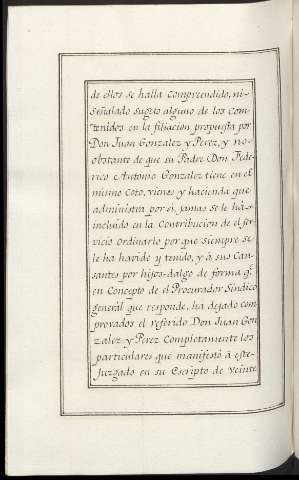 de ellos se halla comprendido, ni
señalado sugeto alguno de los con-
tenidos en la filiacion propuesta por
Don Juan Gonzalez y Perez, y no
obstante de que su Padre Don Fede-
rico Antonio Gonzalez tiene en el
mismo Coto, vienes y hacienda que
administra por si, jamas se le ha-
incluido en la Contribucion de el ser-
vicio ordinario por que siempre se
le ha havido y tenido, y à sus Cau-
santes por hijos-dalgo de forma qe.
en Concepto de el Procurador Sindico
general que responde, ha dejado com
provados el referido Don Juan Gon
zalez y Perez Completamente los
particulares que manifestó à este-
Juzgado en su Escripto de veinte